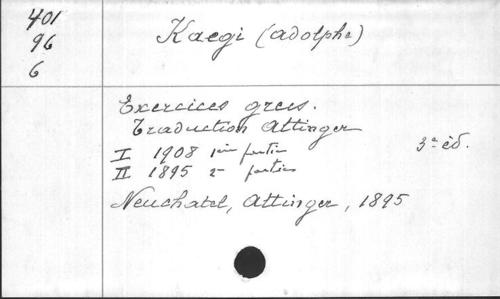 401
96
6
Kaegi (Adolphe)
Exercices grecs.
Traduction Attinger
I 1908 1ère partie 3e éd.
II 1895 2e partie
Neuchatel, Attinger, 1895